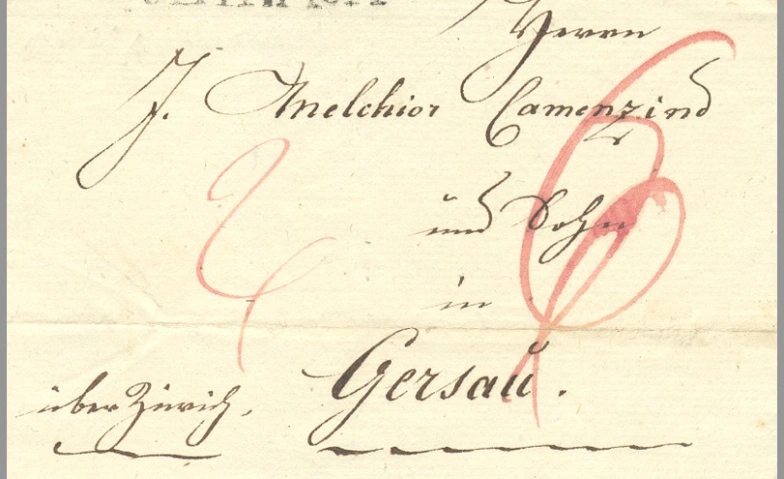 Herrn
J. Melchior Camenzind
und Sohn
in
Gersau.
über Zürich,